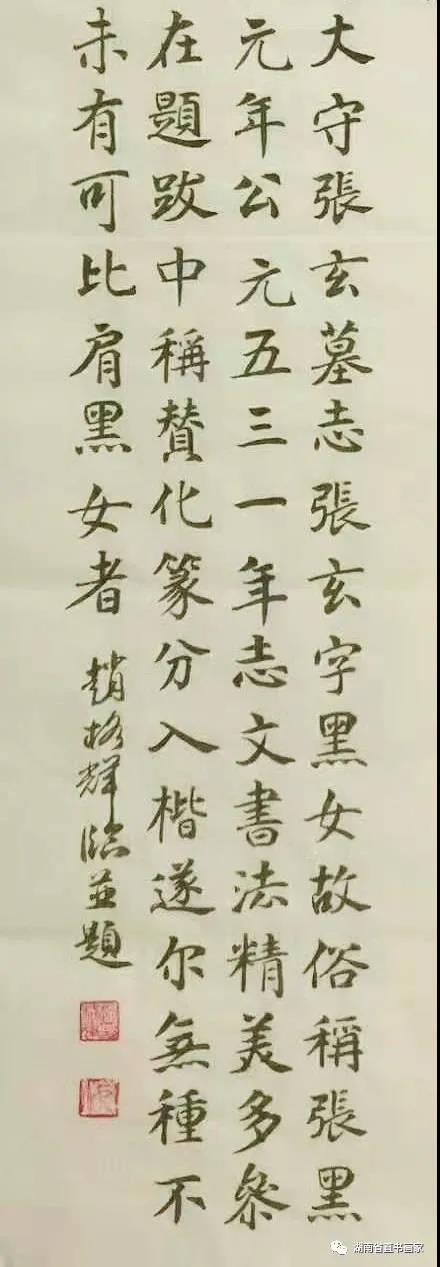 大守張玄墓志張玄字黑女故俗稱張黑
元年公元五三一年志文書法精美多叅
在題跋中稱賛化篆分入楷遂尔無種不
未有可比肩黑女者
趙格輝臨並題
湖南省直书画家